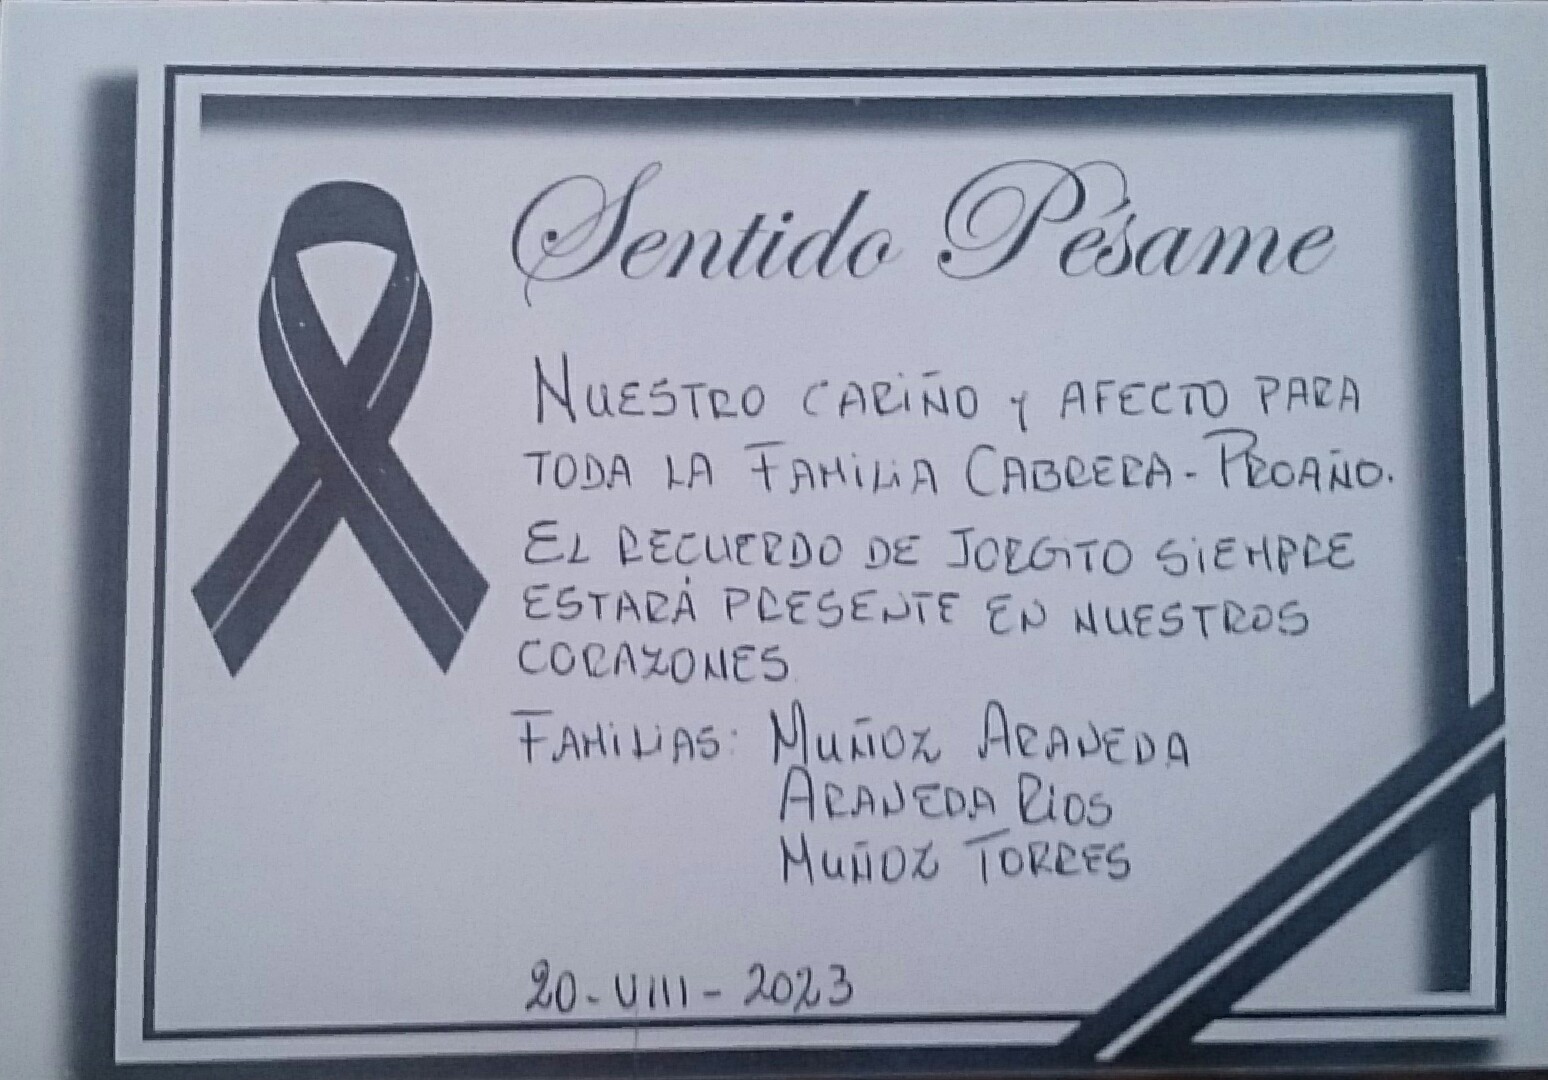 Sentido Pésame
NUESTRO CARIÑO Y AFECTO PARA
TODA LA FAMILIA CABRERA - PROAÑO.
EL RECUERDO DE JORGITO SIEMPRE
ESTARÁ PRESENTE EN NUESTROS
CORAZONES
FAMILIAS: MUÑOZ ARANEDA
ARANEDA RIOS
MUÑOZ TORRES
20-VIII-2023